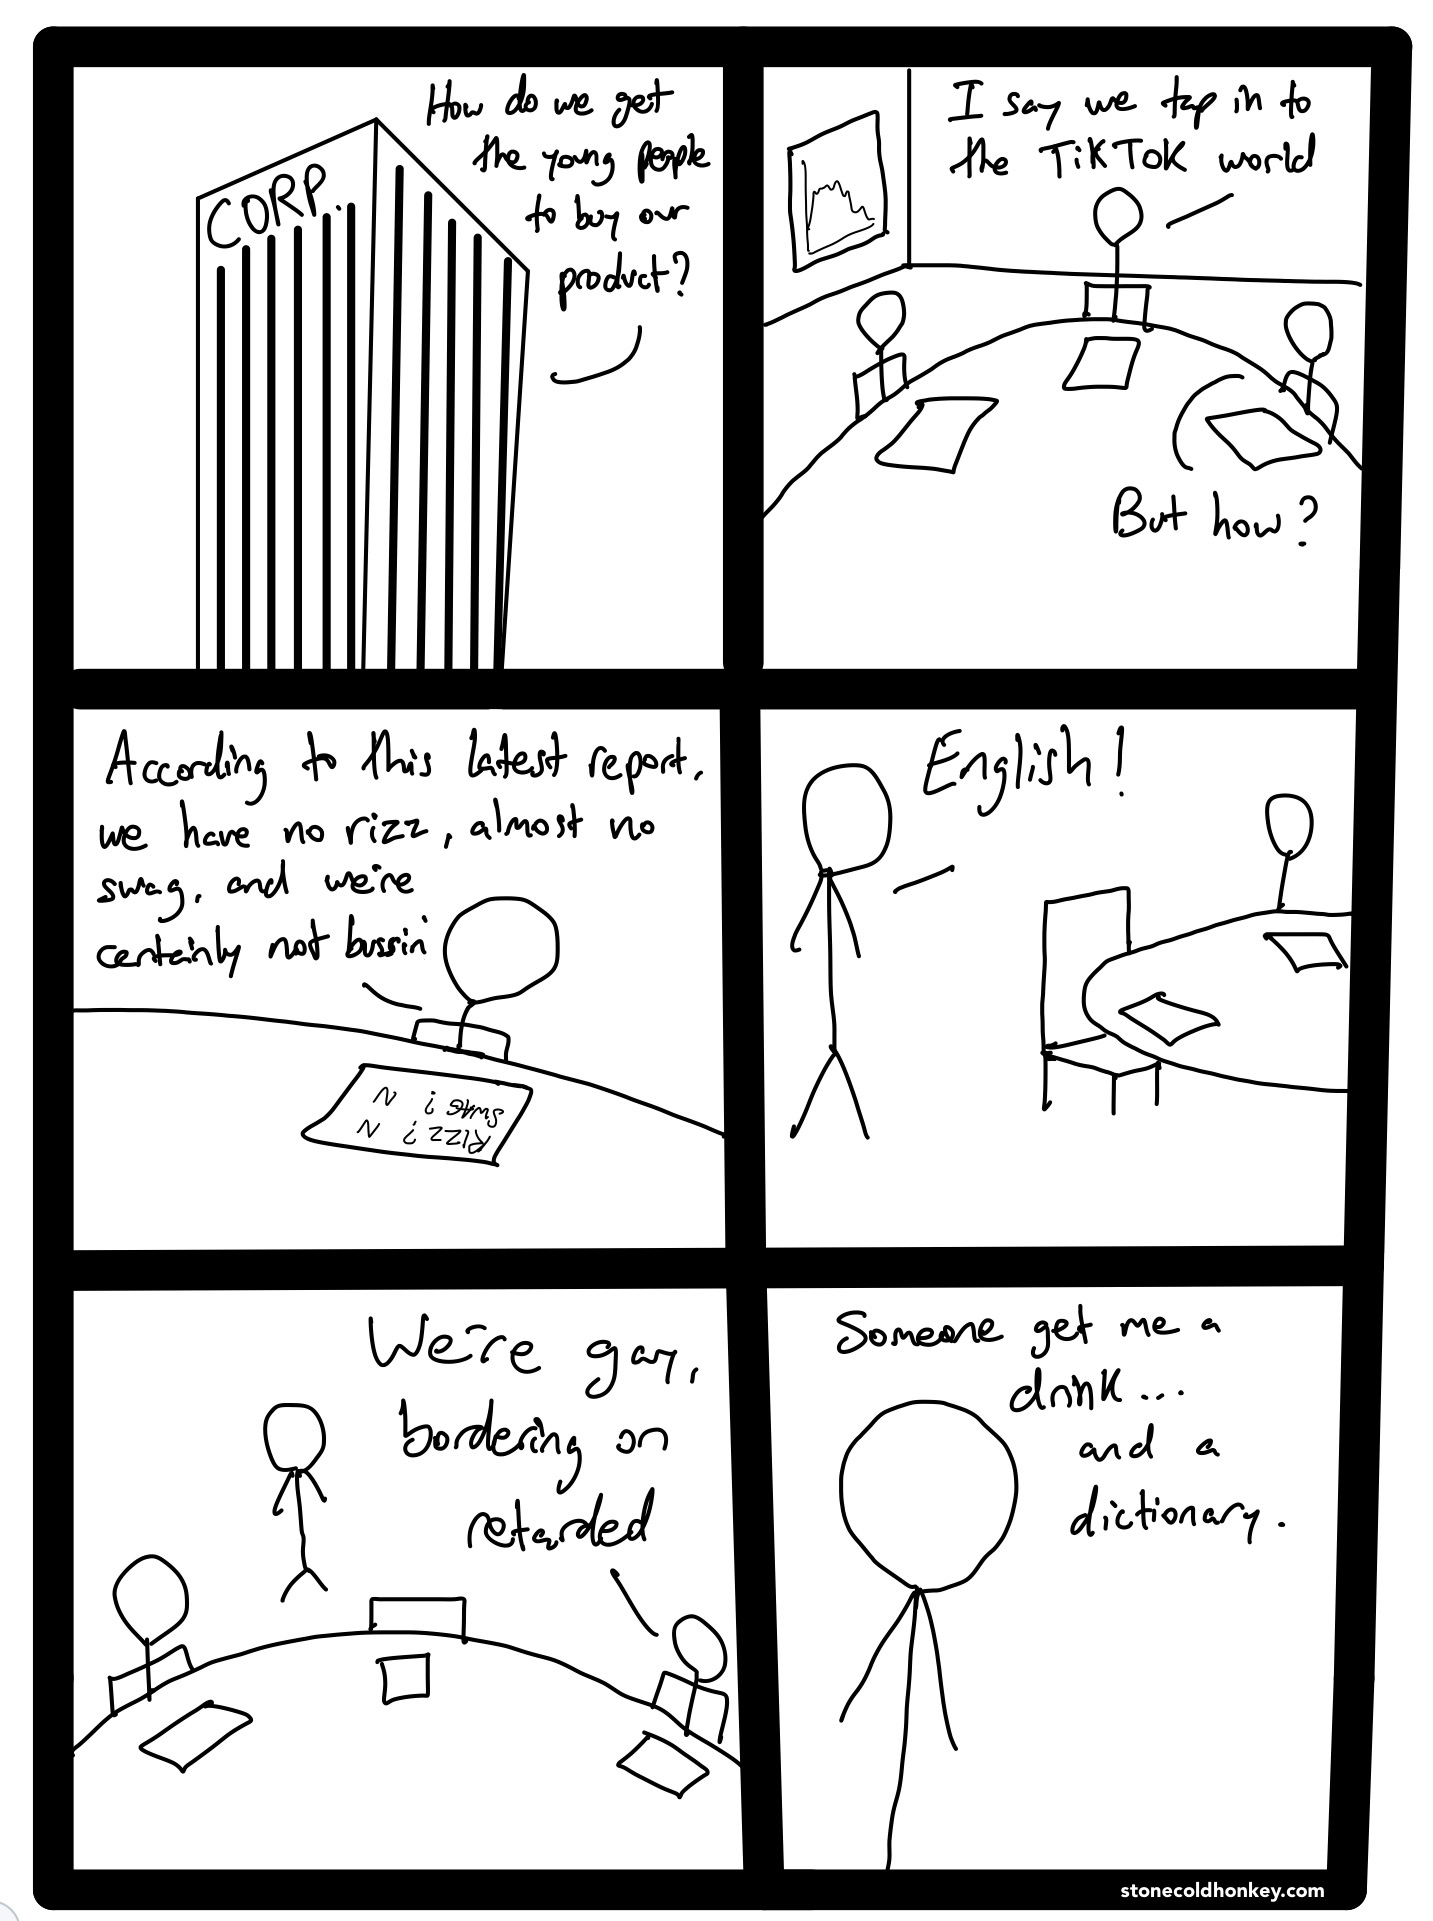 How do we get
the young people
to buy our
product?
CORP.
I say we tap in to
the TikTok world
But how?
According to this latest report,
we have no rizz, almost no
swag, and we're
certainly not bussin'
SWAG? N
RIZZ? N
English!
We're gay,
bordering on
retarded
Someone get me a
drink...
and a
dictionary.
stonecoldhonkey.com